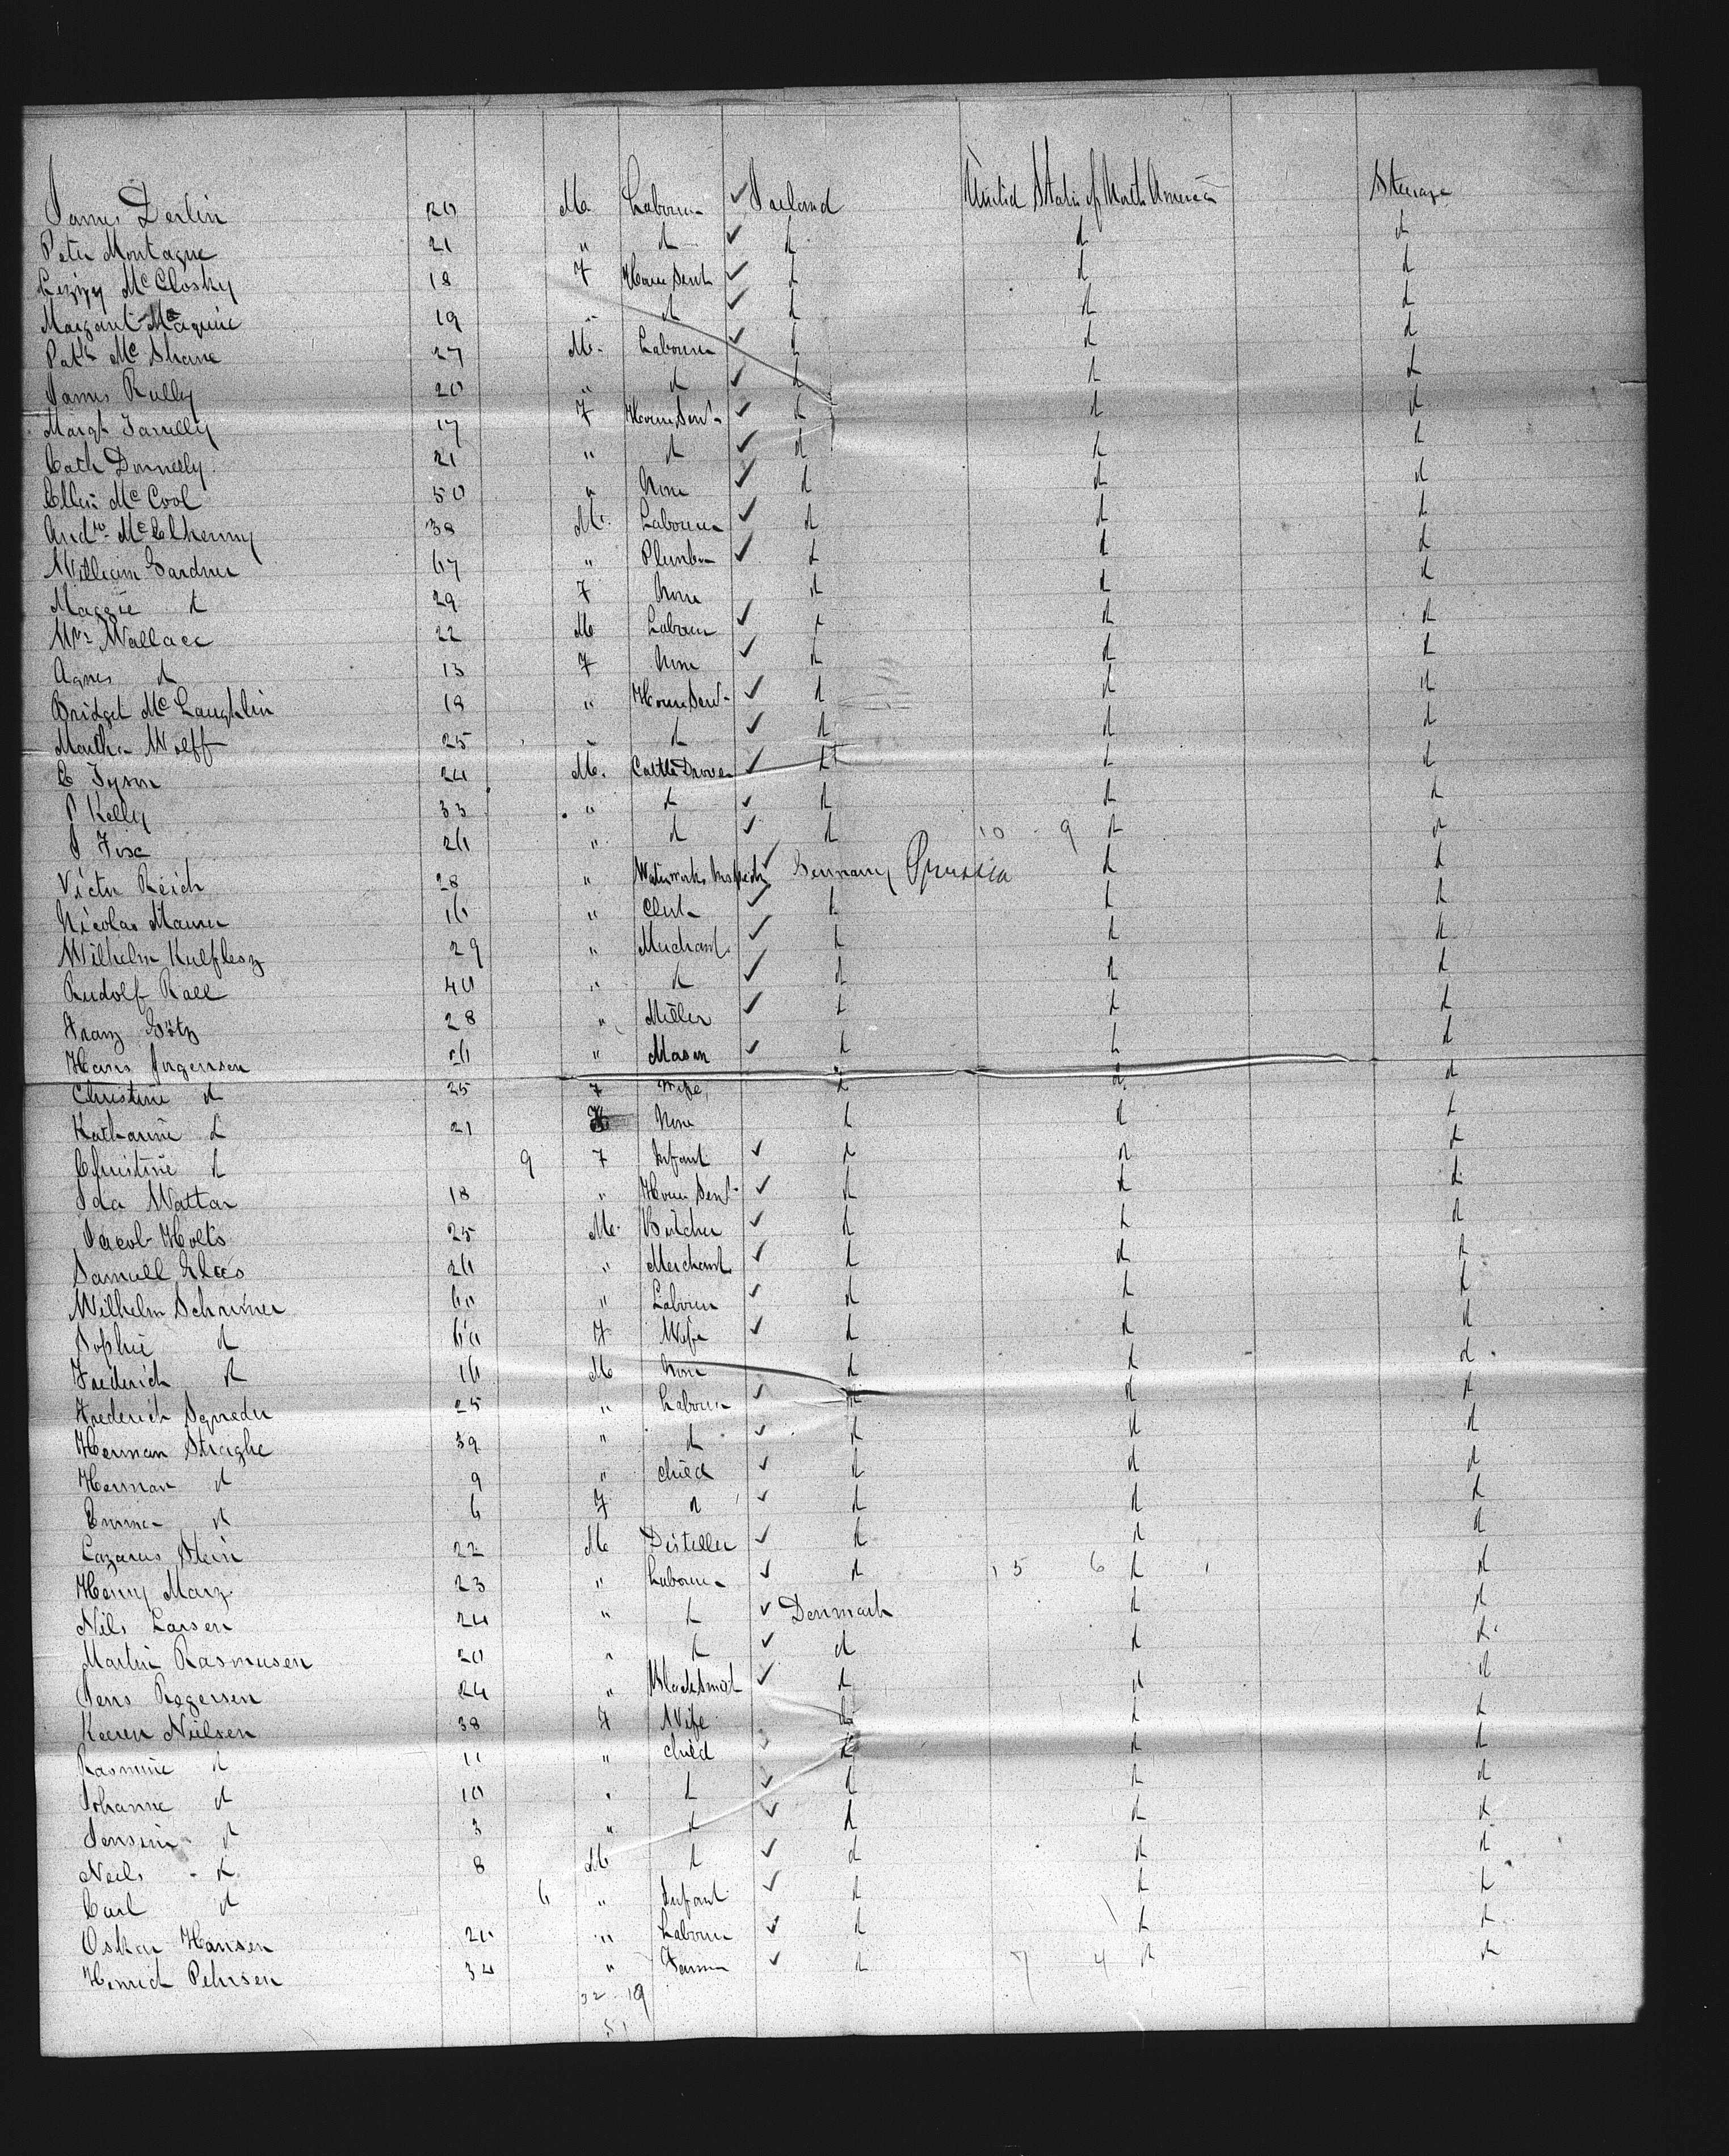 James Devlin 20 M. Labourer ✓ Ireland United States of North America Steerage
Peter Montague 21 " d ✓ d d d
Lizzy McClosky 18 F House Servt ✓ d d d
Margaret Maguire 19 " d ✓ d d d
Patk McShane 27 M. Labourer ✓ d d d
James Rully 20 " d ✓ d d d
Margt Farrelly 17 F House Servt ✓ d d d
Cath Donnelly 21 " d ✓ d d d
Ellen McCool 50 " None ✓ d d d
Andw McElhenny 38 M. Labourer ✓ d d d
William Gardner 67 " Plumber ✓ d d d
Maggie d 29 F None d d d
Wm Wallace 22 M Labourer ✓ d d d
Agnes d 13 F None ✓ d d d
Bridget McLaughlin 18 " House Servt ✓ d d d
Martha Wolff 25 " d ✓ d d d
E Tyson 24 M. Cattle Drover ✓ d d d
P Kelly 33 " d ✓ d d d
J Fise 26 " d ✓ d 10 9 d d
Victor Reich 28 " Waterworks Inspector ✓ Germany Prussia d d
Nicolas Maurer 16 " Clerk ✓ d d d
Wilhelm 29 " Merchant ✓ d d d
Rudolf Rall 40 " d ✓ d d d
Franz Götz 28 " Miller ✓ d d d
Hans Jorgensen 26 " Mason ✓ d d d
Christine d 25 F Wife d d d
Katharine d 21 None d d d
Christine d 9 F Infant ✓ d d d
Ida Wattar 18 " House Servt ✓ d d d
Jacob Holts 25 M. Butcher ✓ d d d
Samuell Elias 26 " Merchant ✓ d d d
Wilhelm Schriner 60 " Labourer ✓ d d d
Sophie d 60 F Wife ✓ d d d
Frederich d 16 M None d d d
Frederich 25 " Labourer ✓ d d d
Herman Straghe 39 " d ✓ d d d
Herman d 9 " child ✓ d d d
Emma d 6 F d ✓ d d d
Lazarus Stein 22 M Distiller ✓ d d d
Henry Marz 23 " Labourer ✓ d 15 6 d d
Nils Larsen 24 " d ✓ Denmark d d
Martin Rasmusen 20 " d ✓ d d d
Jens Rogersen 24 " Blacksmith ✓ d d d
Karen Nielsen 38 F Wife d d d
Rasmine d 11 " child ✓ d d d
Johanne d 10 " d ✓ d d d
Jensine d 3 " d ✓ d d d
Neils d 8 M d ✓ d d d
Carl d 6 " Infant ✓ d d d
Oskar Hansen 20 " Labourer ✓ d d d
Henrich Pehrsen 34 " Farmer ✓ d 7 4 d d
32 19
51